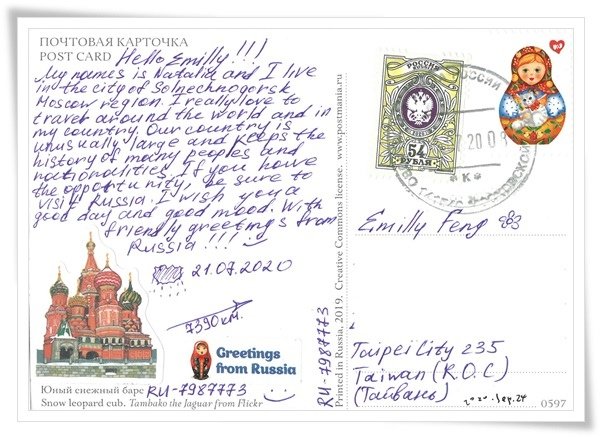 ПОЧТОВАЯ КАРТОЧКА
POST CARD
Hello Emilly!!!
My names is Natalia and I live
in the city of Solnechnogorsk
Moscow region. I really love to
travel around the world and in
my country. Our country is
unusually large and keeps the
history of many peoples and
nationalities. If you have
the opportunity, be sure to
visit Russia. I wish you a
good day and good mood. With
friendly greetings from
Russia!!!
21.07.2020
7390 км.
Greetings
from Russia
Юный снежный барс
RU-7987773
Snow leopard cub. Tambako the Jaguar from Flickr
RU-7987773
Printed in Russia, 2019. Creative Commons license. www.postmania.ru
РОССИЯ
54
РУБЛЯ
РОССИИ
20 09
*К*
Emilly Feng
Taipei City 235
Taiwan (R.O.C)
(Тайвань)
2020. Sep. 24
0597